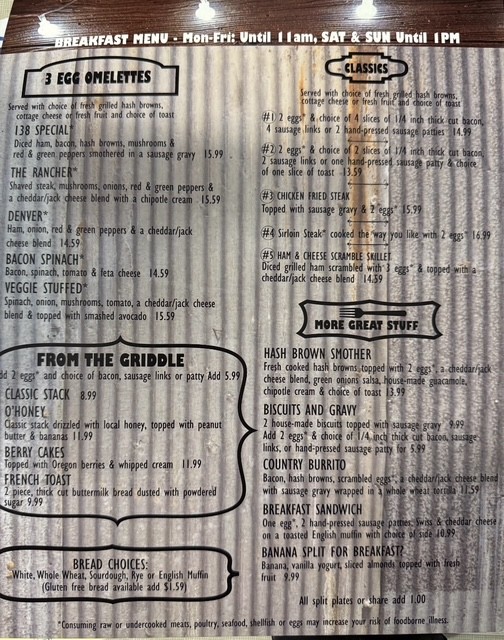 BREAKFAST MENU - Mon-Fri: Until 11am, SAT & SUN Until 1PM
3 EGG OMELETTES
Served with choice of fresh grilled hash browns,
cottage cheese or fresh fruit and choice of toast
138 SPECIAL*
Diced ham, bacon, hash browns, mushrooms &
red & green peppers smothered in a sausage gravy 15.99
THE RANCHER*
Shaved steak, mushrooms, onions, red & green peppers &
a cheddar/jack cheese blend with a chipotle cream 15.59
DENVER*
Ham, onion, red & green peppers & a cheddar/jack
cheese blend 14.59
BACON SPINACH*
Bacon, spinach, tomato & feta cheese 14.59
VEGGIE STUFFED*
Spinach, onion, mushrooms, tomato, a cheddar/jack cheese
blend & topped with smashed avocado 15.59
FROM THE GRIDDLE
dd 2 eggs* and choice of bacon, sausage links or patty Add 5.99
CLASSIC STACK 8.99
O'HONEY
Classic stack drizzled with local honey, topped with peanut
butter & bananas 11.99
BERRY CAKES
Topped with Oregon berries & whipped cream 11.99
FRENCH TOAST
2 piece, thick cut buttermilk bread dusted with powdered
sugar 9.99
BREAD CHOICES:
White, Whole Wheat, Sourdough, Rye or English Muffin
(Gluten free bread available add $1.59)
CLASSICS
Served with choice of fresh grilled hash browns,
cottage cheese or fresh fruit and choice of toast
#1 2 eggs* & choice of 4 slices of 1/4 inch thick cut bacon,
4 sausage links or 2 hand-pressed sausage patties 14.99
#2 2 eggs* & choice of 2 slices of 1/4 inch thick cut bacon,
2 sausage links or one hand-pressed sausage patty & choice
of one slice of toast 13.59
#3 CHICKEN FRIED STEAK
Topped with sausage gravy & 2 eggs* 15.99
#4 Sirloin Steak* cooked the way you like with 2 eggs* 16.99
#5 HAM & CHEESE SCRAMBLE SKILLET
Diced grilled ham scrambled with 3 eggs* & topped with a
cheddar/jack cheese blend 14.59
MORE GREAT STUFF
HASH BROWN SMOTHER
Fresh cooked hash browns topped with 2 eggs*, a cheddar/jack
cheese blend, green onions salsa, house-made guacamole,
chipotle cream & choice of toast 13.99
BISCUITS AND GRAVY
2 house-made biscuits topped with sausage gravy 9.99
Add 2 eggs* & choice of 1/4 inch thick cut bacon, sausage
links, or hand-pressed sausage patty for 5.99
COUNTRY BURRITO
Bacon, hash browns, scrambled eggs*, a cheddar/jack cheese blend
with sausage gravy wrapped in a whole wheat tortilla 11.59
BREAKFAST SANDWICH
One egg*, 2 hand-pressed sausage patties, Swiss & cheddar cheese
on a toasted English muffin with choice of side 10.99
BANANA SPLIT FOR BREAKFAST?
Banana, vanilla yogurt, sliced almonds topped with fresh
fruit 9.99
All split plates or share add 1.00
*Consuming raw or undercooked meats, poultry, seafood, shellfish or eggs may increase your risk of foodborne illness.